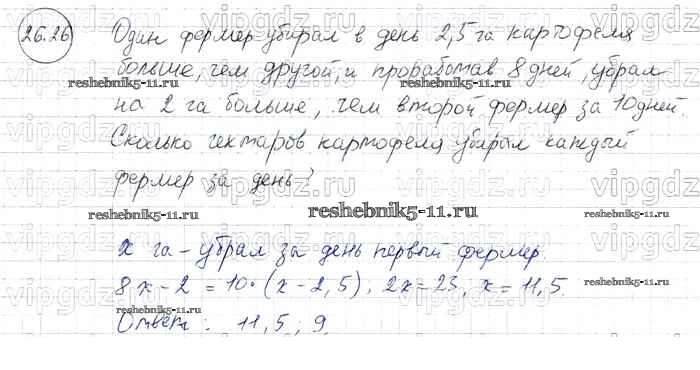 26.26 Один фермер убирал в день 2,5 га картофеля
больше, чем другой, и проработав 8 дней, убрал
reshebnik5-11.ru reshebnik5-11.ru
на 2 га больше, чем второй фермер за 10 дней.
Сколько гектаров картофеля убирал каждый
фермер за день?
reshebnik5-11.ru reshebnik5-11.ru reshebnik5-11.ru
x га - убрал за день первый фермер.
8x-2=10·(x-2,5), 2x=23, x=11,5.
reshebnik5-11.ru reshebnik5-11.ru
Ответ: 11,5; 9.